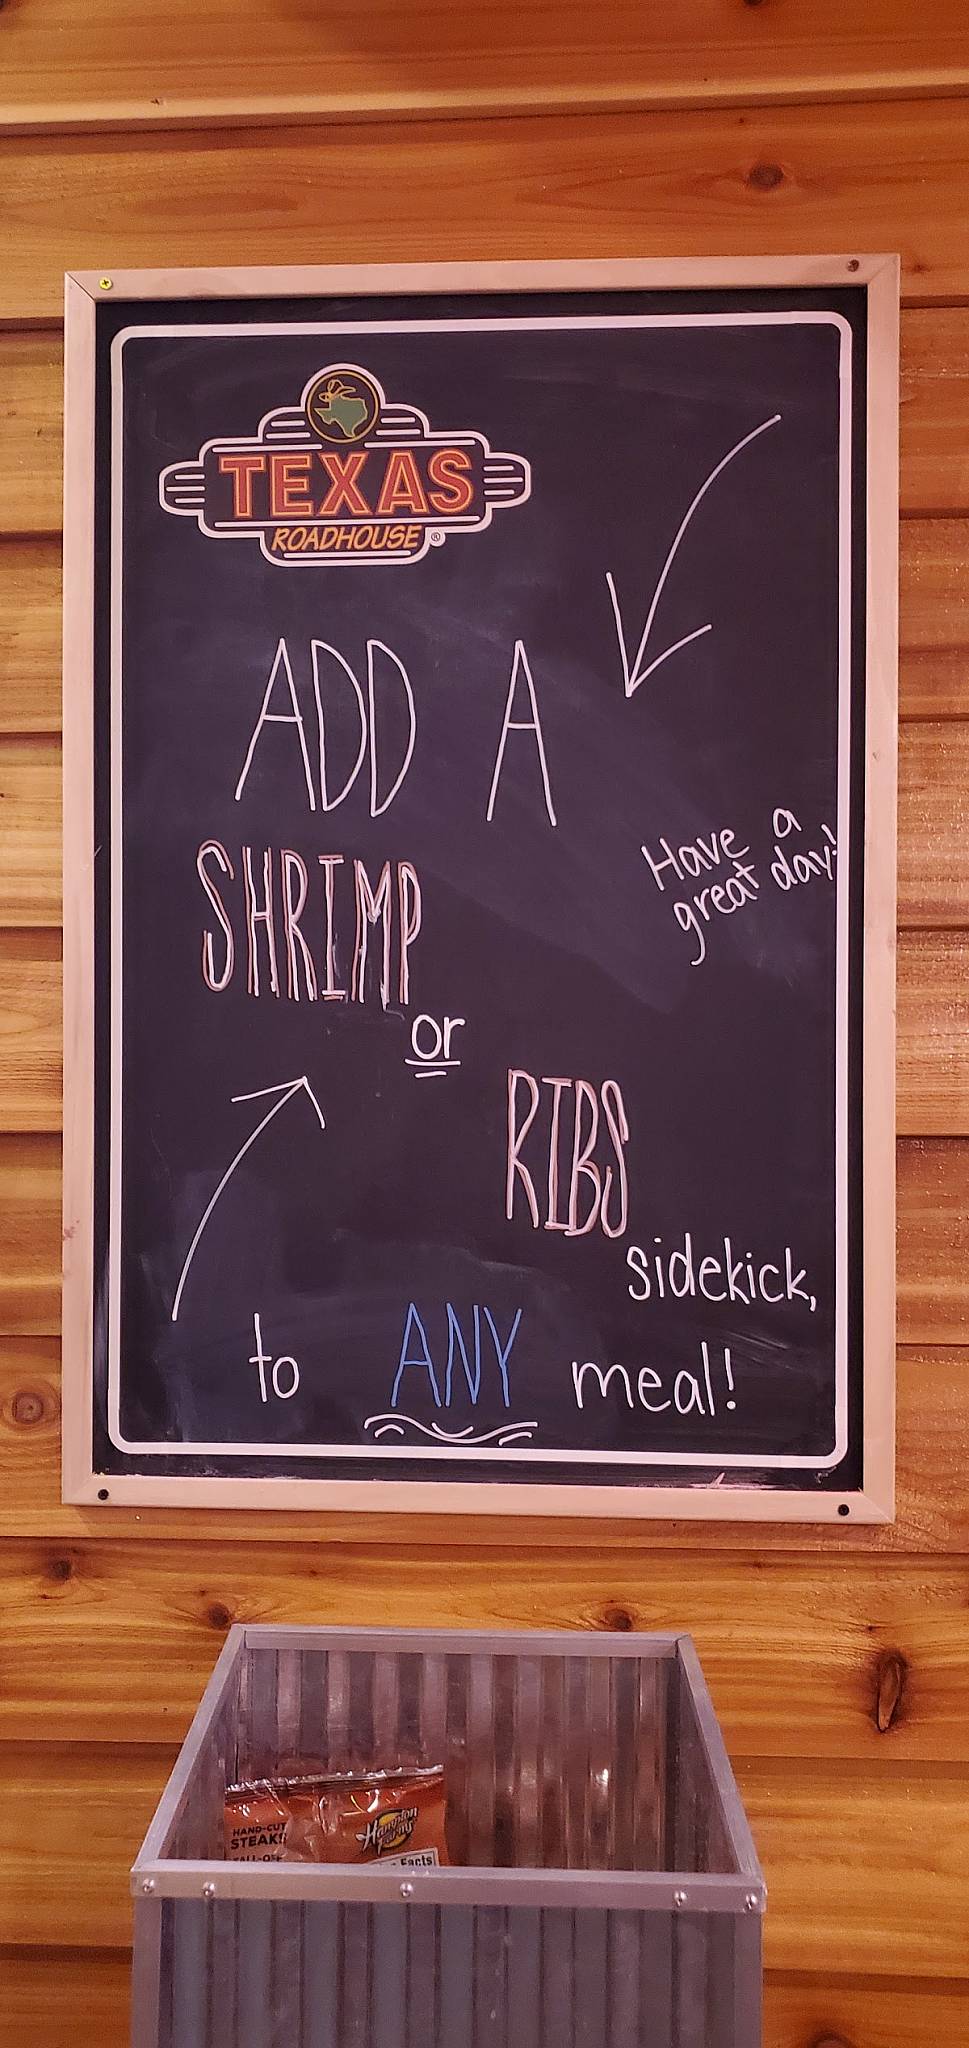 TEXAS
ROADHOUSE ®
ADD A
SHRIMP
or
RIBS
sidekick,
to ANY meal!
Have a
great day!
HAND-CUT
STEAKS
FALL-OFF
Hampton
Farms
Facts